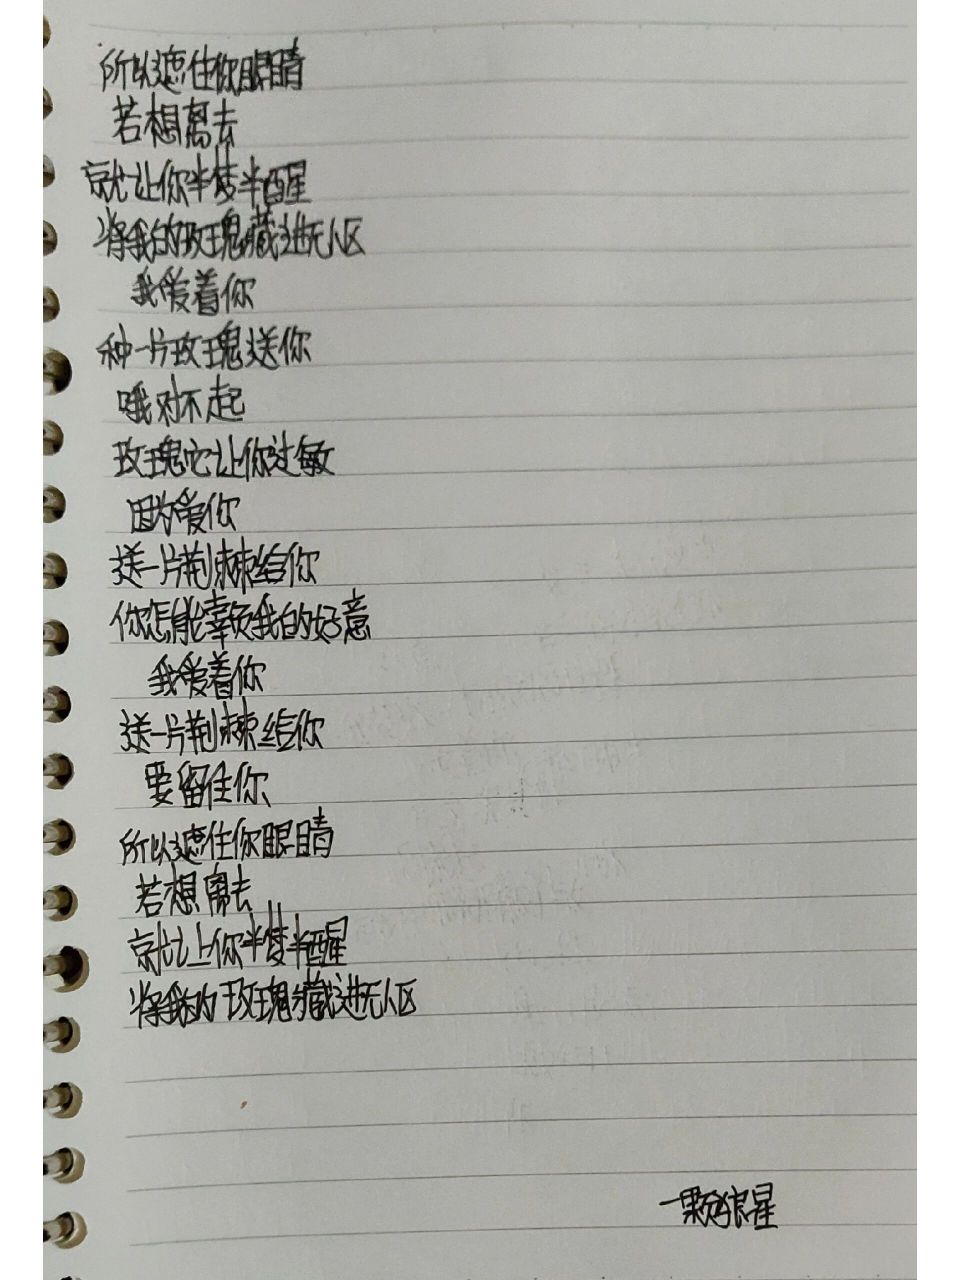 所以遮住你眼睛
若想离去
就让你半梦半醒
将我的玫瑰藏进无人区
我爱着你
种一片玫瑰送你
哦对不起
玫瑰它让你过敏
因为爱你
送一片荆棘给你
你怎能辜负我的好意
我爱着你
送一片荆棘给你
要留住你
所以遮住你眼睛
若想离去
就让你半梦半醒
将我的玫瑰藏进无人区
一颗狼星